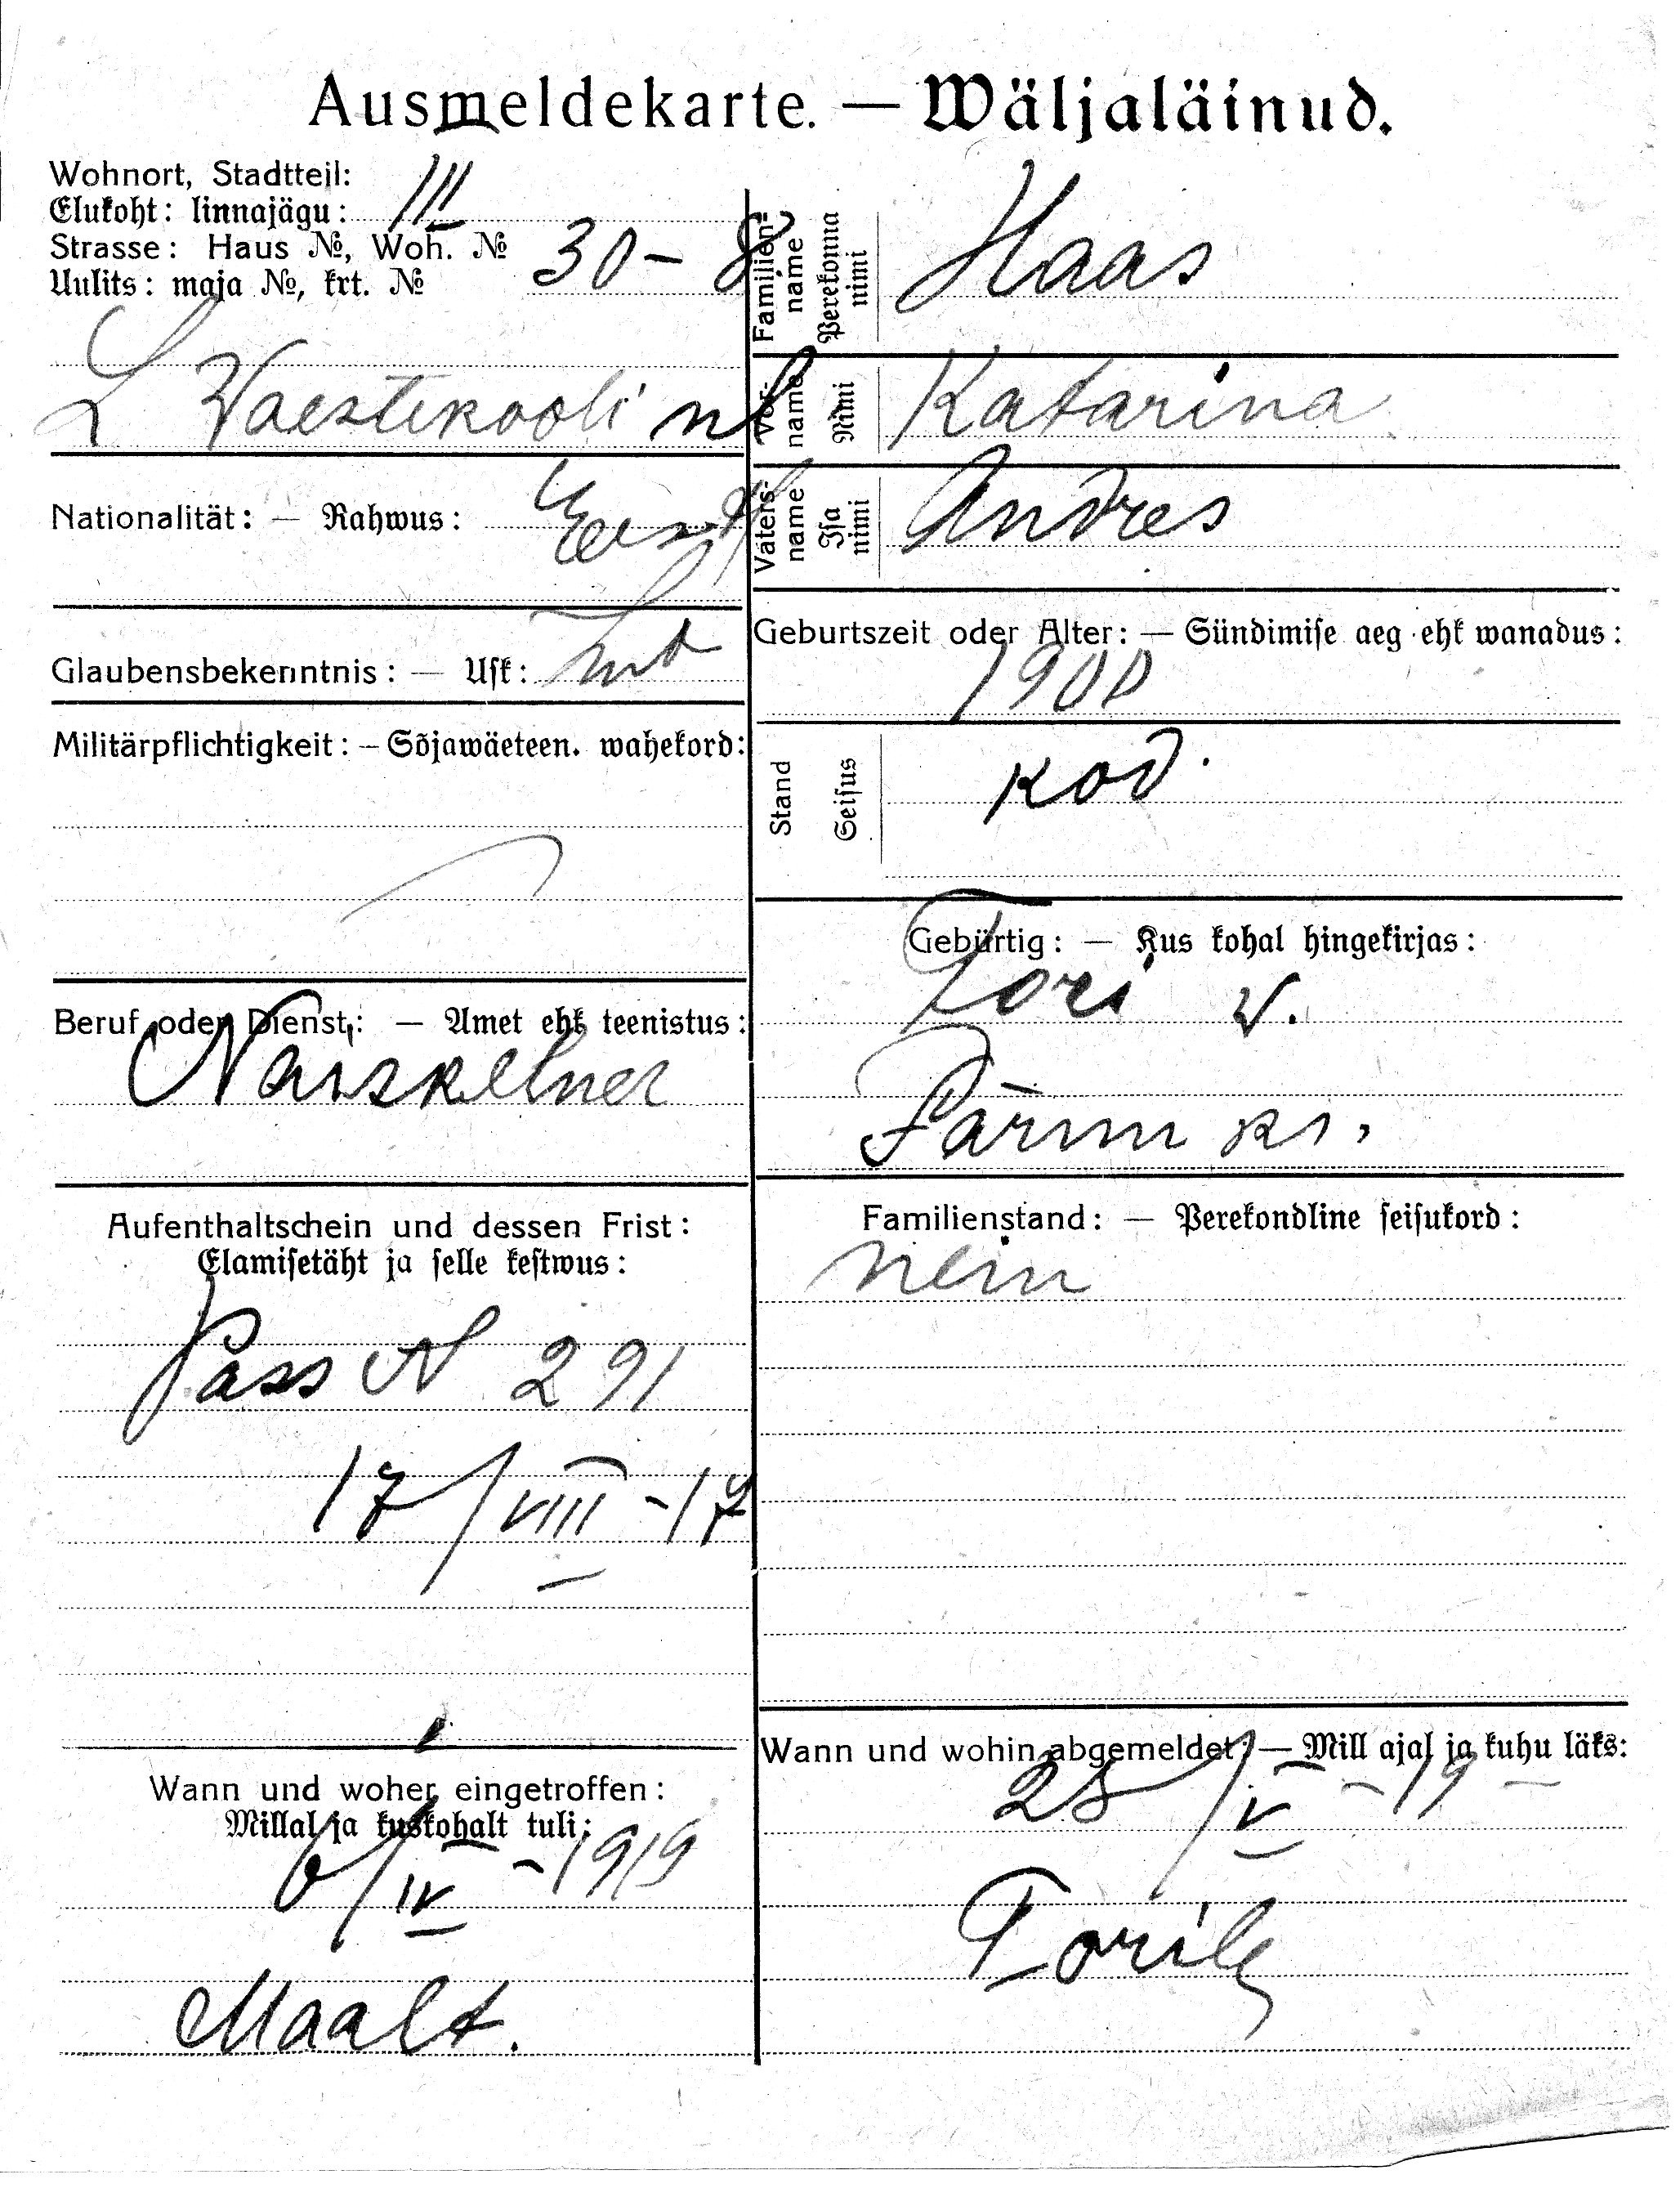 Ausmeldekarte. — Wäljaläinud.
Wohnort, Stadtteil:
Elukoht: linnajägu: III
Strasse: Haus №, Woh. №
Uulits: maja №, krt. № 30 – 8
L Waestekooli
Nationalität: — Rahwus: Eest
Glaubensbekenntnis: — Usk:
Militärpflichtigkeit: – Sõjawäeteen. wahekord:
Beruf oder Dienst: — Amet ehk teenistus:
Naiskelner
Aufenthaltschein und dessen Frist:
Elamisetäht ja selle kestwus:
Pass N 291
17/VIII – 17
Wann und woher eingetroffen:
Millal ja kuskohalt tuli:
6/IV – 1919
Maalt.
Familien-
name
Perekonna
nimi
Haas
Vor-
name
Nimi
Katarina
Vaters-
name
Isa
nimi
Andres
Geburtszeit oder Alter: — Sündimise aeg ehk wanadus:
1900
Stand
Seisus
kod.
Gebürtig: — Kus kohal hingekirjas:
Tori v.
Pärnu kr.
Familienstand: — Perekondline seisukord:
nein
Wann und wohin abgemeldet: — Mill ajal ja kuhu läks:
28/V – 19
Torile